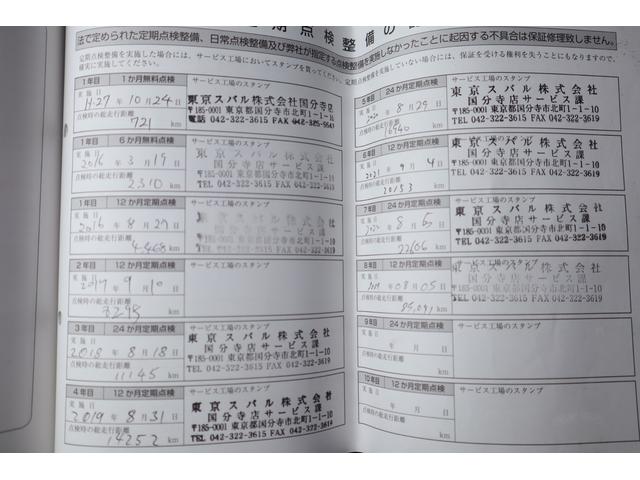 定期点検整備の
法で定められた定期点検整備、日常点検整備及び弊社が指定する点検整備を実施しなかったことに起因する不具合は保証修理致しません。
定期点検整備を実施した場合には、サービス工場においてスタンプを貰ってください。定期点検整備を実施していない場合には、保証を受ける権利を失うこともなりますので、
確実に実施してください。
1年目 1か月無料点検 サービス工場のスタンプ
実施日
H27年10月24日
点検時の総走行距離
721 km
東京スバル株式会社国分寺店
〒185-0001 東京都国分寺市北町1-1-10
電話 042-322-3615 FAX 042-325-5643
1年目 6か月無料点検 サービス工場のスタンプ
実施日
2016年3月19日
点検時の総走行距離
2310 km
東京スバル株式会社
国分寺店サービス課
〒185-0001 東京都国分寺市北町1-1-10
TEL 042-322-3615 FAX 042-322-3619
1年目 12か月定期点検 サービス工場のスタンプ
実施日
2016年8月27日
点検時の総走行距離
4468 km
東京スバル株式会社
国分寺店サービス課
〒185-0001 東京都国分寺市北町1-1-10
TEL 042-322-3615 FAX 042-322-3619
2年目 12か月定期点検 サービス工場のスタンプ
実施日
2017年9月10日
点検時の総走行距離
km
3年目 24か月定期点検 サービス工場のスタンプ
実施日
2018年8月18日
点検時の総走行距離
11145 km
東京スバル株式会社
国分寺店サービス課
〒185-0001 東京都国分寺市北町1-1-10
TEL 042-322-3615 FAX 042-322-3619
4年目 12か月定期点検 サービス工場のスタンプ
実施日
2019年8月31日
点検時の総走行距離
14252 km
東京スバル株式会社
国分寺店サービス課
〒185-0001 東京都国分寺市北町1-1-10
TEL 042-322-3615 FAX 042-322-3619
5年目 24か月定期点検 サービス工場のスタンプ
実施日
年8月29日
点検時の総走行距離
16940 km
東京スバル株式会社
国分寺店サービス課
〒185-0001 東京都国分寺市北町1-1-10
TEL 042-322-3615 FAX 042-322-3619
6年目 12か月定期点検 サービス工場のスタンプ
実施日
2021年9月4日
点検時の総走行距離
20153 km
東京スバル株式会社
国分寺店サービス課
〒185-0001 東京都国分寺市北町1-1-10
TEL 042-322-3615 FAX 042-322-3619
7年目 24か月定期点検 サービス工場のスタンプ
実施日
年8月5日
点検時の総走行距離
km
東京スバル株式会社
国分寺店サービス課
〒185-0001 東京都国分寺市北町1-1-10
TEL 042-322-3615 FAX 042-322-3619
8年目 12か月定期点検 サービス工場のスタンプ
実施日
年08月05日
点検時の総走行距離
km
東京スバル株式会社
国分寺店サービス課
〒185-0001 東京都国分寺市北町1-1-10
TEL 042-322-3615 FAX 042-322-3619
9年目 24か月定期点検 サービス工場のスタンプ
実施日
年 月 日
点検時の総走行距離
km
10年目 12か月定期点検 サービス工場のスタンプ
実施日
年 月 日
点検時の総走行距離
km